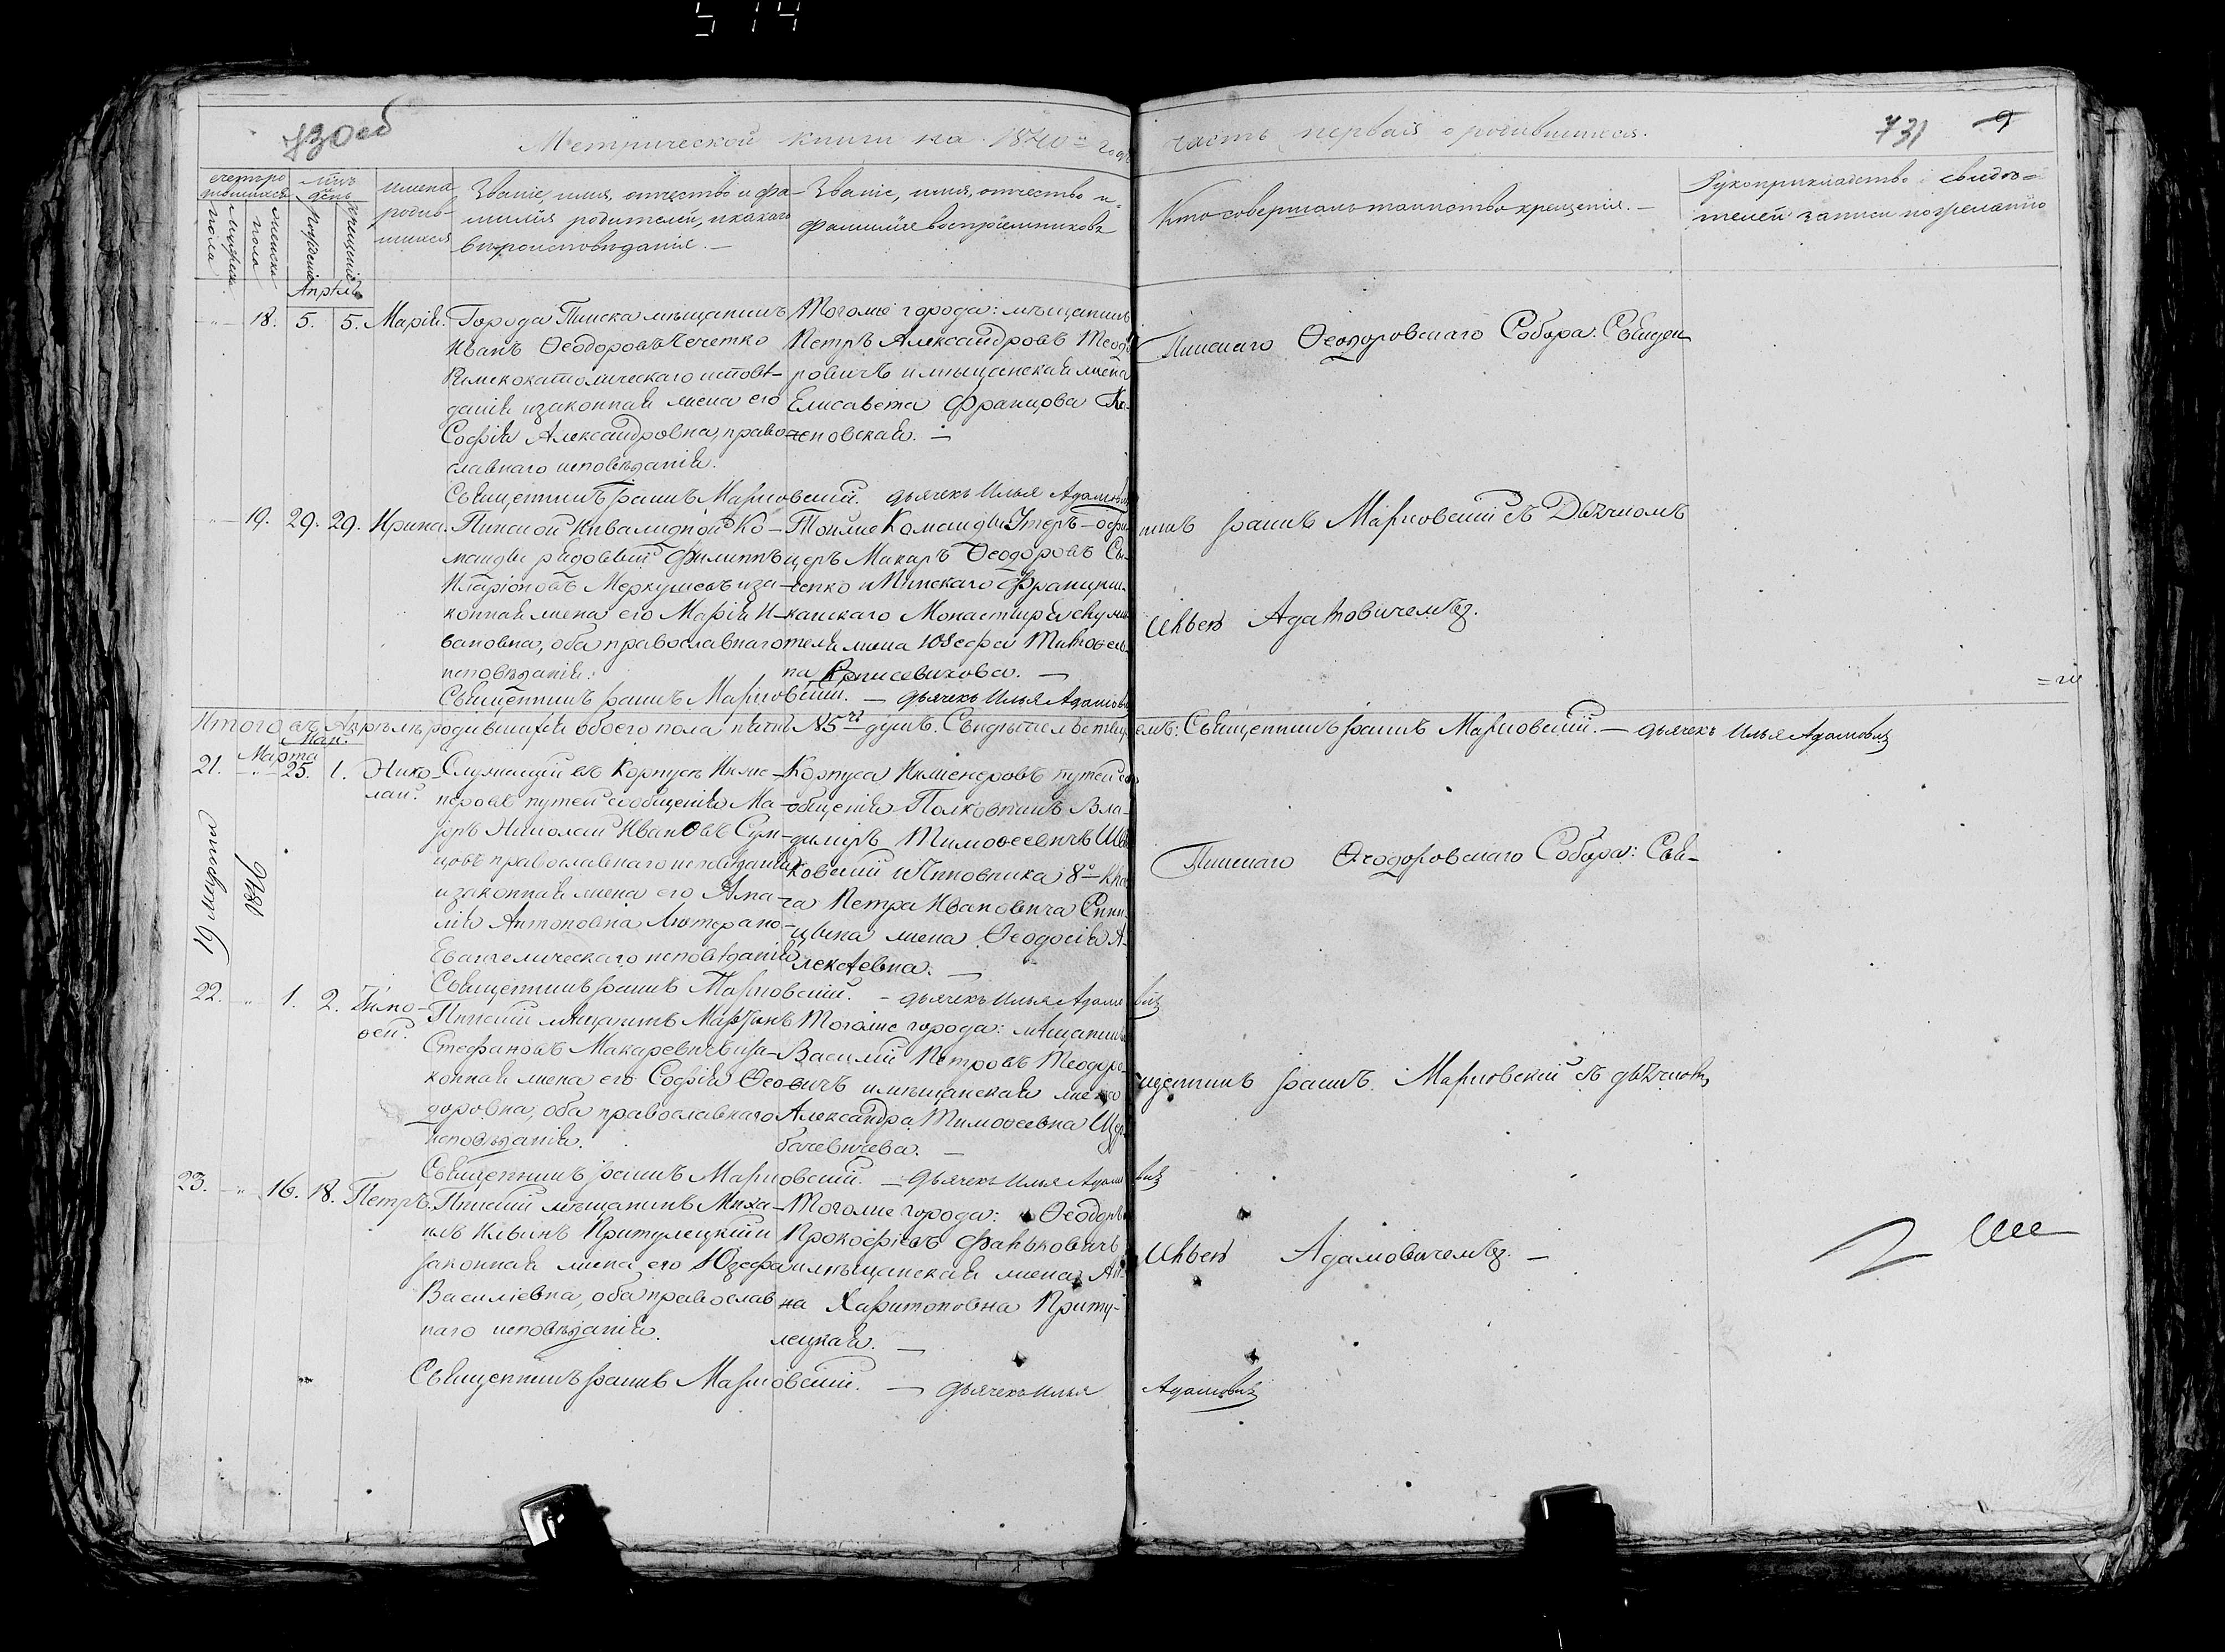 514
730об
Метрической книги на 1840й годъ часть первая о родившихся.
731 9
счетъ родившихся
мужеска пола
женска пола
мѣс. и день
рожденія
крещенія
имена родившихся
Званіе, имя, отчество и фамилія родителей, и какаго вѣроисповѣданія. —
Званіе, имя, отчество и фамилія воспріемниковъ
Кто совершалъ таинство крещенія. —
Рукоприкладство свидѣтелей записи по желанію
Апрѣль
18. 5. 5. Марія.
Города Пинска мѣщанинъ
Иванъ Ѳеодоровъ Чечетко
Римскокатолическаго исповѣ-
данія и законная жена его
Софія Александровна, право-
славнаго исповѣданія.
Тогоже города: мѣщанинъ
Петръ Александровъ Теодо
ровичъ и мѣщанская жена
Елисавета Францова
ченовская. —
Священникъ Іоаннъ Марновскій. дьячекъ Илья Адамови
19. 29. 29. Ирина.
Пинской Инвалидной Ко-
манды рядовый Филиппъ
Иларіоновъ Меркушевъ и за-
конная жена его Марія И-
вановна, оба православнаго
исповѣданія.
Тойже Команды Унтеръ-офи
церъ Макаръ Ѳеодоровъ Са-
ченко и Минскаго Францин-
канскаго Монастыря
теля жена Юзефа Тимоѳеев-
на Борисевичова. —
Священникъ Іоаннъ Марновскій. — дьячекъ Илья Адамови
Пинскаго Ѳеодоровскаго Собора: Священ
никъ Іоаннъ Марновскій съ Дьячкомъ
Ильею Адамовичемъ.
Итого въ Апрѣлѣ родившихся обоего пола пять №5ть душъ. Свидѣтельствуемъ: Священникъ Іоаннъ Марновскій. — дьячекъ Илья Адамовичъ
Маи.
Марта
21. 25. 1. Нико-
лай.
19 октября
1876
Служащій въ Корпусѣ Инже-
неровъ путей сообщенія Ма-
јоръ Николай Ивановъ Сум-
цовъ православнаго исповѣданія
и законная жена его Ама-
лія Антоновна Лютерано-
Евангелическаго исповѣданія
Корпуса Инженеровъ путей со
общенія Полковникъ Вла-
димиръ Тимоѳеевичъ
ковскій и Чиновника 8го кла
са Петра Ивановича
цына жена Ѳеодосія А-
лексѣевна. —
Священникъ Іоаннъ Марновскій. — дьячекъ Илья Адамовичъ
22. 1. 2. Тимо-
ѳей.
Пинскій мѣщанинъ Мартинъ
Стефановъ Макаревичъ и за-
конная жена его Софія Ѳео-
доровна, оба православнаго
исповѣданія.
Тогоже города: мѣщанинъ
Василій Петровъ Теодоро-
вичъ и мѣщанская жена
Александра Тимоѳеевна Щер-
бачевичева. —
Священникъ Іоаннъ Марновскій. — дьячекъ Илья Адамовичъ
23. 16. 18. Петръ.
Пинскій мѣщанинъ Миха-
илъ Ильинъ Притулецкій и
законная жена его Юзефа
Василіевна, оба православ
наго исповѣданія.
Тогоже города: Ѳеодоръ
Прокофіевъ Фаньковичъ
и мѣщанская жена Ан-
на Харитоновна Приту-
лецкая. —
Священникъ Іоаннъ Марновскій. — дьячекъ Илья Адамовичъ
Пинскаго Ѳеодоровскаго Собора: Свя-
щенникъ Іоаннъ Марновскій съ дьячкомъ
Ильею Адамовичемъ. —